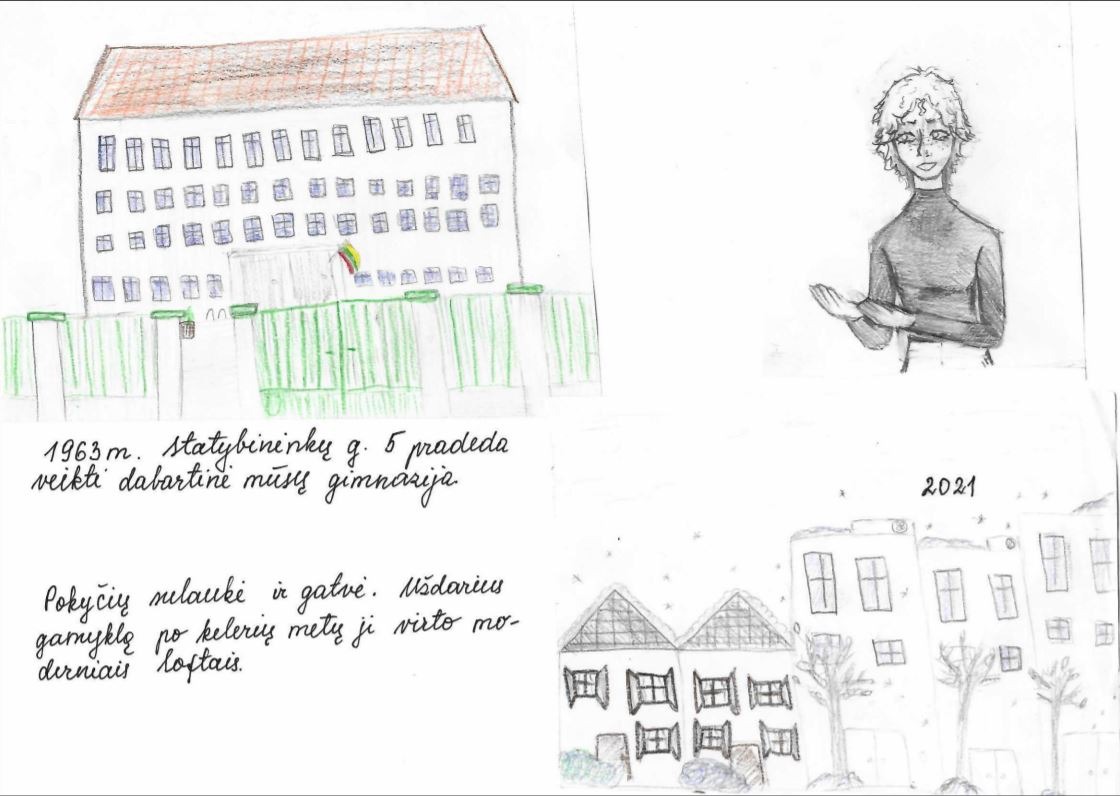 1963 m. Statybininkų g. 5 pradeda
veikti dabartinė mūsų gimnazija.
2021
Pokyčių sulaukė ir gatvė. Uždarius
gamyklą po kelerių metų ji virto mo-
derniais loftais.